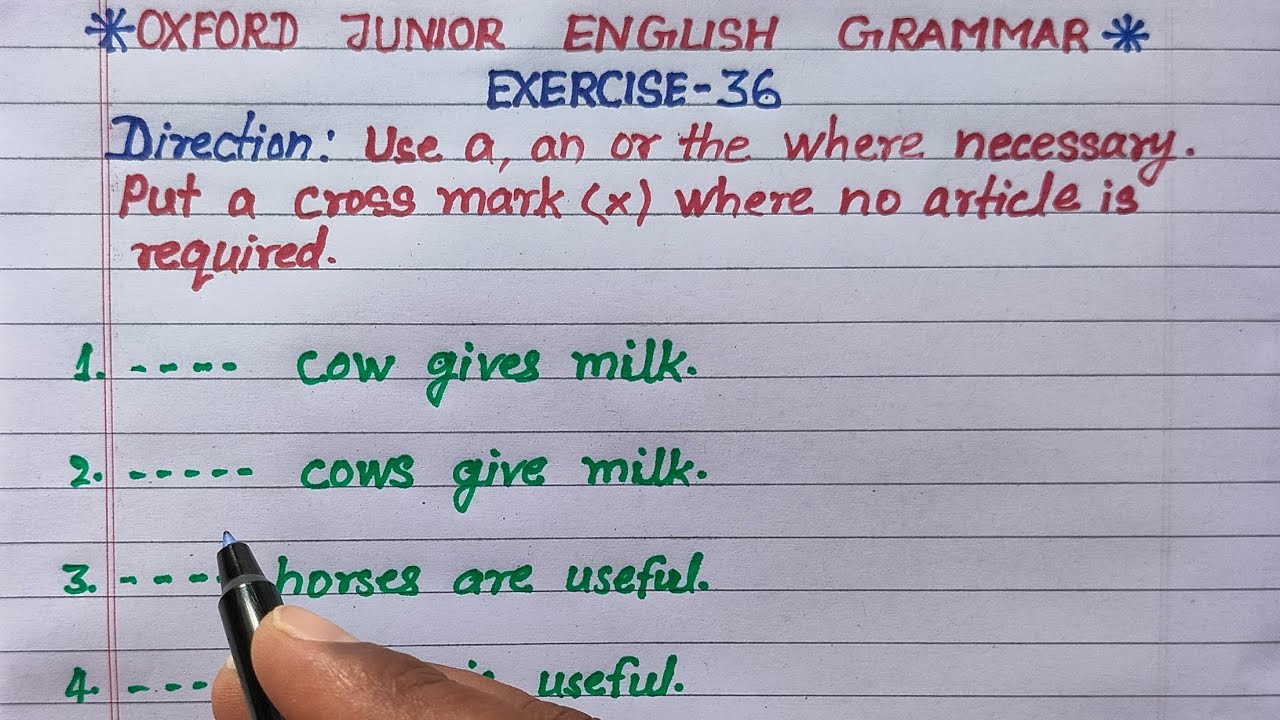 *OXFORD JUNIOR ENGLISH GRAMMAR*
EXERCISE-36
Direction: Use a, an or the where necessary.
Put a cross mark (x) where no article is
required.
1. ---- cow gives milk.
2. ----- cows give milk.
3. ---- horses are useful.
4. ---- useful.